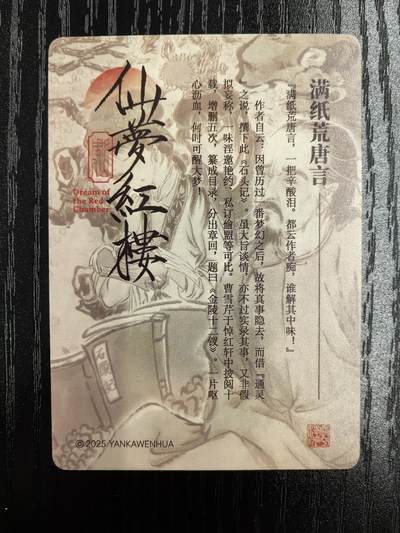 满纸荒唐言——
『满纸荒唐言，一把辛酸泪。都云作者痴，谁解其中味！』
作者自云：因曾历过一番梦幻之后，故将真事隐去，而借『通灵
』之说，撰下此《石头记》。虽大旨谈情，亦不过实录其事，又非假
拟妄称，一味淫邀艳约、私订偷盟等可比。曹雪芹于悼红轩中披阅十
载，增删五次，纂成目录，分出章回，题曰《金陵十二钗》。一片呕
心沥血，何时可醒大梦！
仙夢紅樓
Dream of
the Red
Chamber
© 2025 YANKAWENHUA